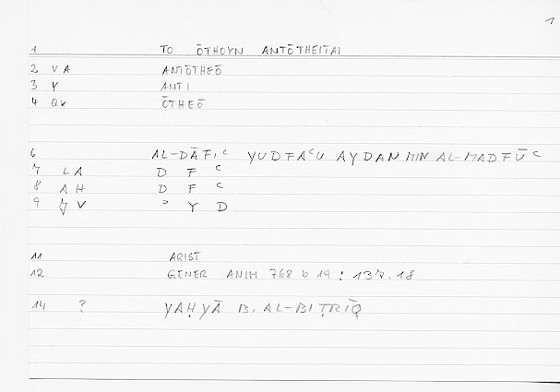 1
1 TO ŌTHOYN ANTŌTHEITAI
2 VA ANTŌTHEŌ
3 Y ANTI
4 Qx ŌTHEŌ
6 AL-DĀFIᶜ YUDFAᶜU AYDAN MIN AL-MADFŪᶜ
7 LA D F ᶜ
8 AH D F ᶜ
9 V ᵓ Y D
11 ARIST
12 GENER ANIM 768 b 19 : 137.18
14 ? YAḤYĀ B. AL-BIṬRĪQ